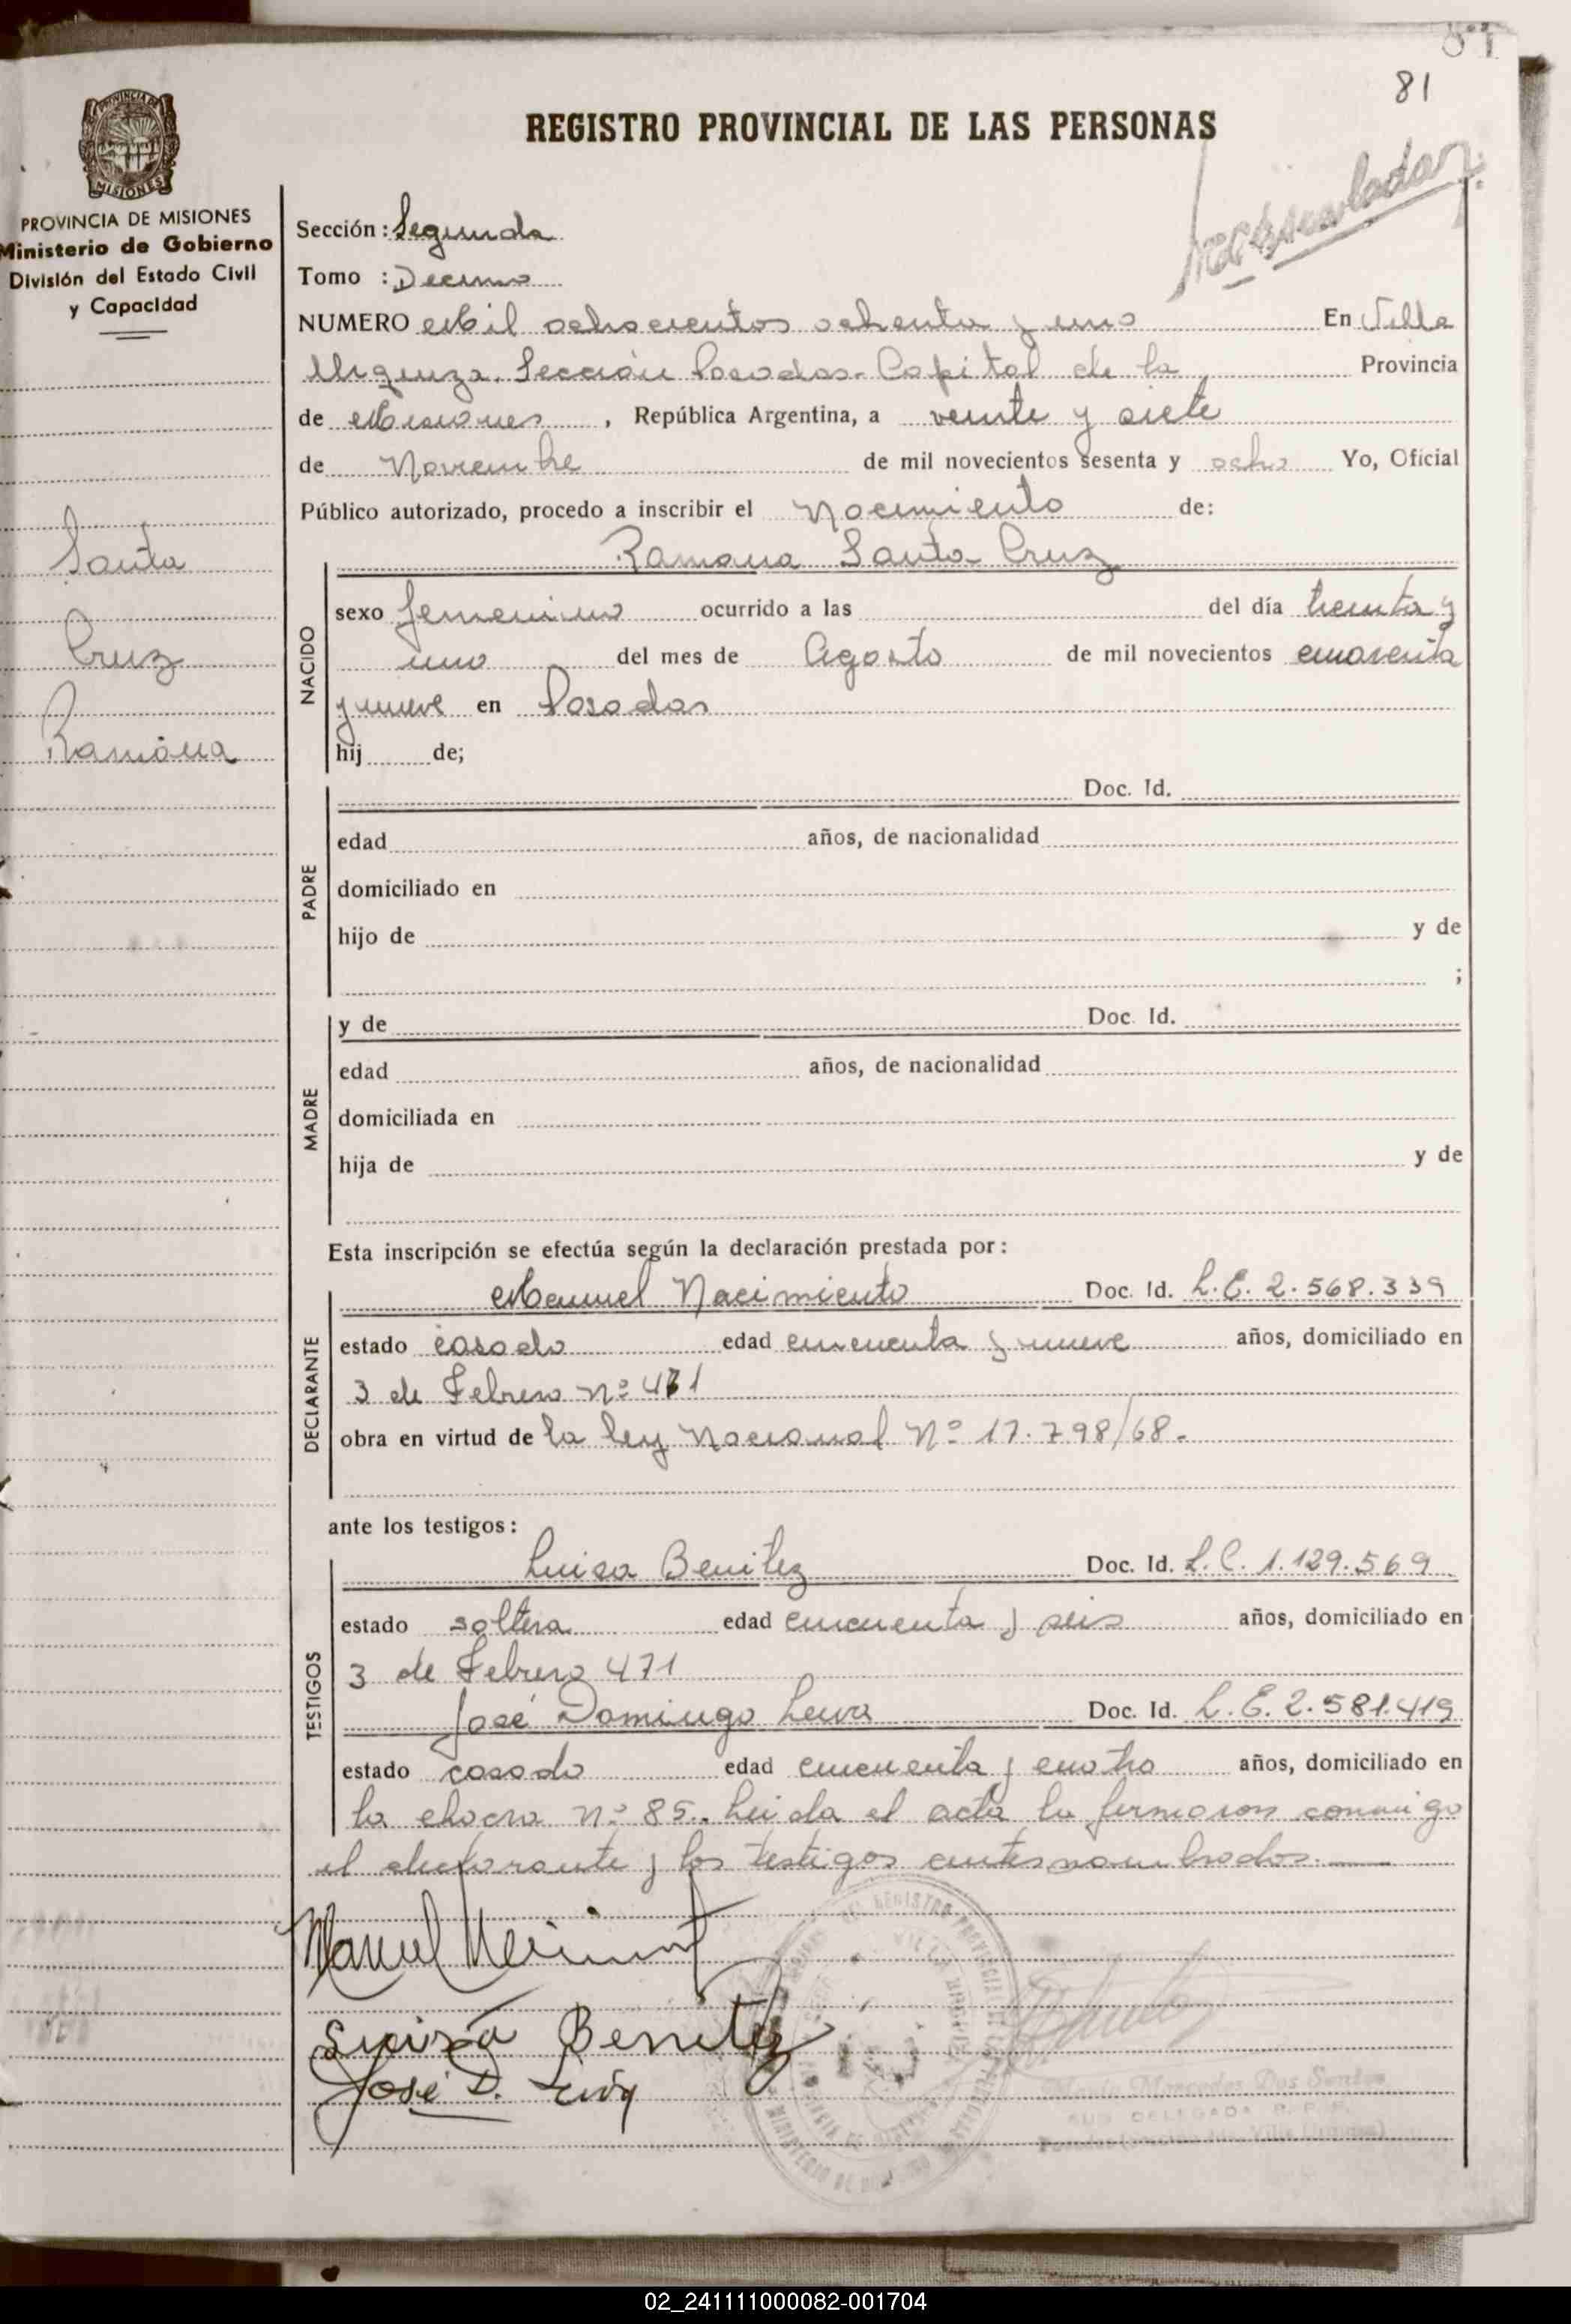 81
REGISTRO PROVINCIAL DE LAS PERSONAS
PROVINCIA DE MISIONES
PROVINCIA DE MISIONES
Ministerio de Gobierno
División del Estado Civil
y Capacidad
Santa
Cruz
Ramona
Sección: Segunda
Tomo : Decimo
NUMERO Mil ochocientos ochenta y uno En Villa
Urquiza. Sección Posadas. Capital de la Provincia
de Misiones, República Argentina, a veinte y siete
de Noviembre de mil novecientos sesenta y ocho Yo, Oficial
Público autorizado, procedo a inscribir el Nacimiento de:
Ramona Santa Cruz
NACIDO
sexo femenino ocurrido a las del día treinta y
uno del mes de Agosto de mil novecientos cuarenta
y nueve en Posadas
hij de;
PADRE
Doc. Id.
edad años, de nacionalidad
domiciliado en
hijo de y de
;
MADRE
y de Doc. Id.
edad años, de nacionalidad
domiciliada en
hija de y de
Esta inscripción se efectúa según la declaración prestada por:
DECLARANTE
Manuel Nacimiento Doc. Id. L.E. 2.568.339
estado casado edad cincuenta y nueve años, domiciliado en
3 de Febrero Nº 471
obra en virtud de la ley Nacional Nº 17.798/68.
ante los testigos:
TESTIGOS
Luisa Benitez Doc. Id. L.C. 1.129.569
estado soltera edad cincuenta y seis años, domiciliado en
3 de Febrero 471
José Domingo Leiva Doc. Id. L.E. 2.581.419
estado casado edad cincuenta y cuatro años, domiciliado en
la chacra Nº 85. Leida el acta la firmaron conmigo
el declarante y los testigos antes nombrados.
Manuel
Luisa Benitez
José D.
Mercedes Dos Santos
SUB DELEGADA R.P.P.
02_241111000082-001704